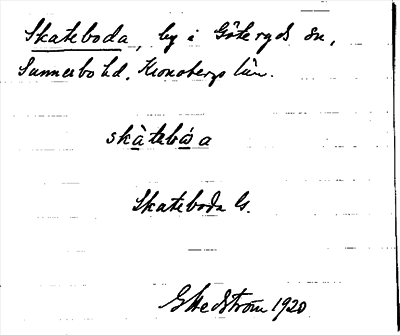 Skateboda, by i Göteryds sn,
Sunnerbo hd, Kronobergs län.
skàtebóa
Skateboda Gs.
G Hedström 1920